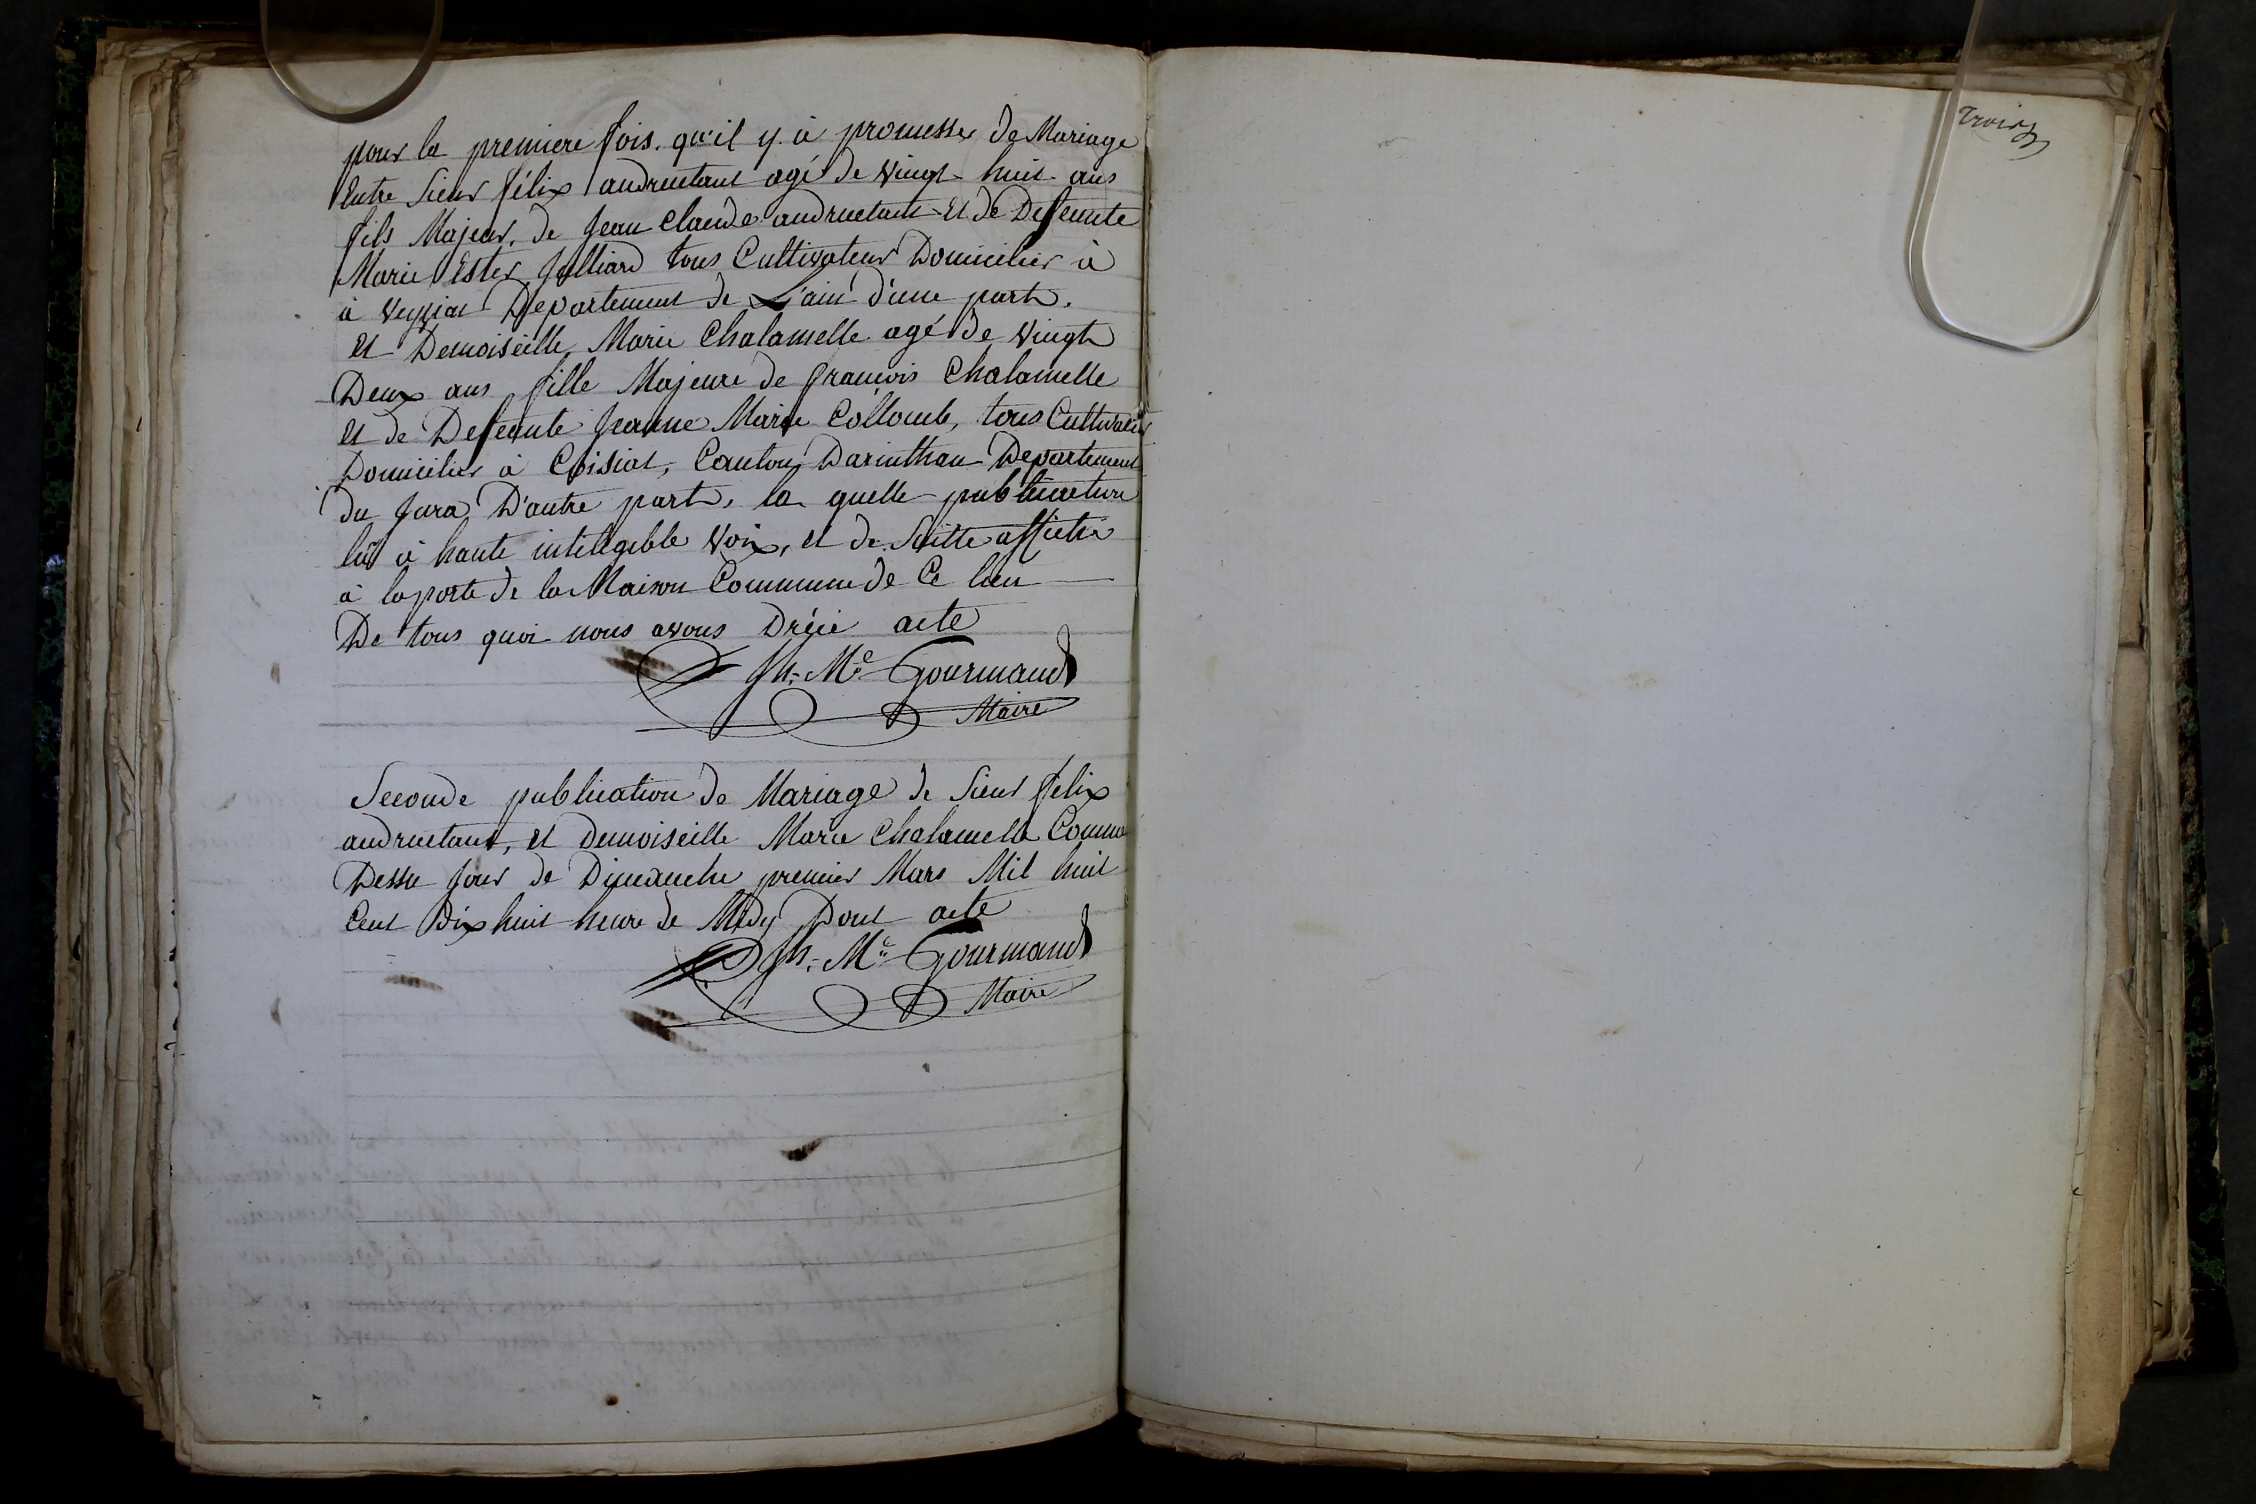 pour la premiere fois. qu'il y. à promesse de Mariage
Entre Sieur félix andruetant agé de vingt huit ans
fils Majeur, de Jean Claude andruetant Et de Defeunte
Marie Ester Julliard tous Cultivateur Domicilier à
à veyziat Departement de L'ain d'une part.
et Demoiseille Marie Chalamelle agé de vingt
Deux ans fille Majeure de françois Chalamelle
et de Defeunte Jeanne Marie Collomb, tous Cultivateur
Domicilier à Coisiat, Canton Darinthau Departement
du Jura D'autre part, la quelle publication
lû à haute inteligible voix, et de Suitte affiché
à la porte de la Maison Commune de Ce lieu
De tous quoi nous avons Dréié acte
Jh. Me Gourmand
Maire
Seconde publication de Mariage de Sieur félix
andruetant, et Demoiseille Marie Chalamelle Comme
Dessu Jour de Dimanche premier Mars Mil huit
Cent Dix huit heure de Midy Dont acte
Jh. Me Gourmand
Maire
Trois